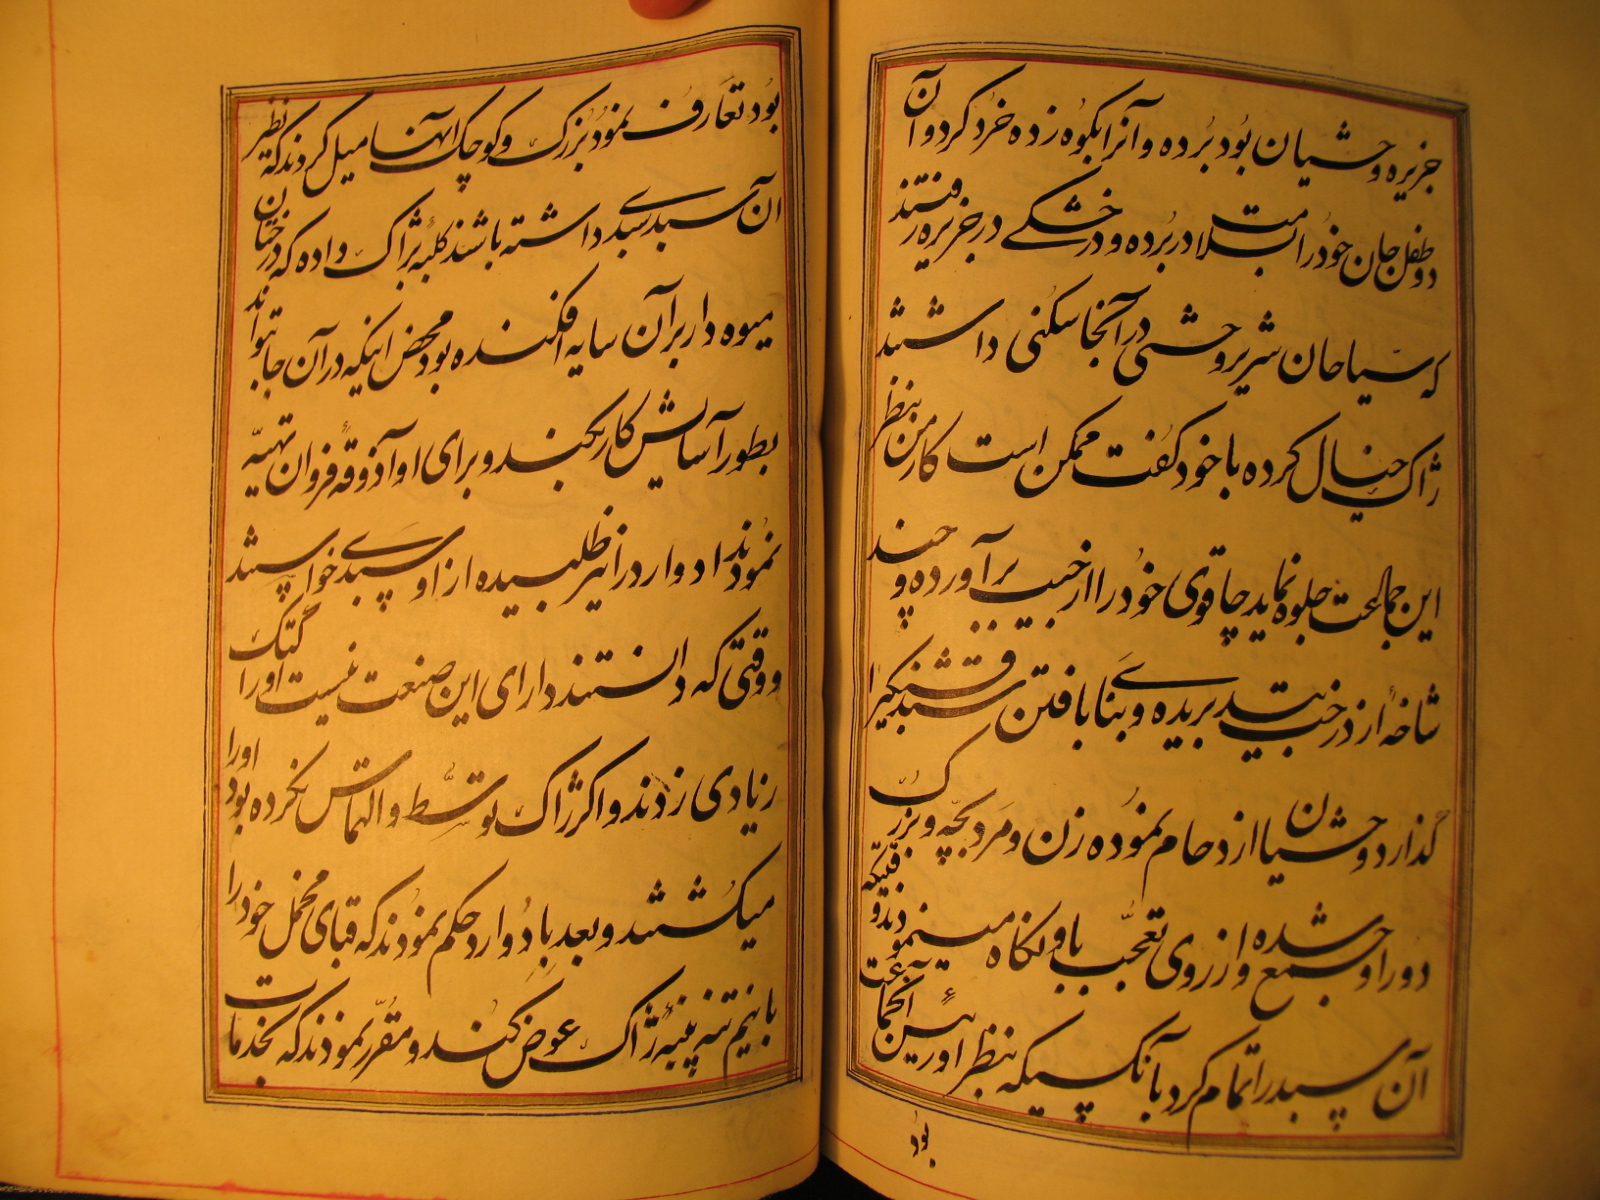 جزیره وحشیان بود برده و آنرا بکوه زده خرد کرد و آن
دو طفل جان خود را بسلامت در برده و در خشکی در جزیره رفتند
که سیاحان شریر وحشی در آنجا سکنی داشتند
ژاک خیال کرده با خود کفت ممکن است کار من بنظر
این جماعت جلوه نماید چاقوی خود را از جیب برآورده و چند
شاخهٔ از درخت بید بریده و بنا بافتن سبد قشنکیرا
گذارد وحشیان ازدحام نموده زن و مرد بچه و بزرک
دور او جمع شده و از روی تعجب باو نکاه مینمودند و وقتیکه
آن سبد را تمام کرد بآنکسیکه بنظر او رئیس آنجماعت
بود
بود تعارف نمود بزرک و کوچک آنها میل کردند که نظیر
آن سبد سبدی داشته باشند کلبه بژاک داده که درختان
میوه دار بر آن سایه افکنده بود محض اینکه در آن جا بتواند
بطور آسایش کار بکند و برای او آذوقه فروان تهیه
نمودند ادوارد را نیز طلبیده از او سبدی خواستند
و وقتی که دانستند دارای این صنعت نیست او را کتک
زیادی زدند و اکر ژاک توسط و التماس نکرده بود او را
میکشتند و بعد بادوارد حکم نمودند که قبای مخمل خود را
با نیم تنه پنبهٔ ژاک عوض کند و مقرر نمودند که بخدمات